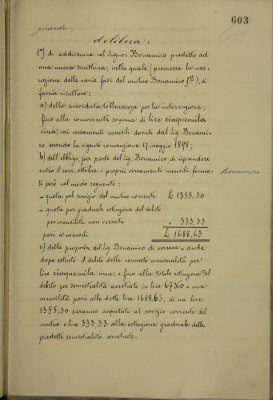 603
delibera:
1°) di addivenire col Signor Bonamico predetto ad
una nuova scrittura, nella quale (premessa la nar-
razione delle varie fasi del mutuo Bonamico), si
faccia risultare:
a) della accordata tolleranza per la interruzione,
fino alla concorrente somma di lire cinquemila
circa, nei versamenti mensili dovuti dal Sig. Bonami-
co secondo la vigente convenzione 17 maggio 1898;
b) dell'obbligo, per parte del Sig. Bonamico di riprendere
entro il corr. ottobre i proprii versamenti mensili, forma-
ti però nel modo seguente:
- quota pel servizio del mutuo corrente £ 1355,30
- quota per graduale estinzione del debito
per mensilità non versate " 333,33
pari a mensili £ 1688,63
c) della proposta del Sig. Bonamico di versare - anche
dopo estinto il debito delle cennate mensualità per
lire cinquemila circa, e fino alla totale estinzione del
debito per semestralità arretrate in lire 67360 - una
mensilità pari alle dette lire 1688,63, di cui lire
1355,30 saranno imputate al servizio corrente del
mutuo e lire 333,33 alla estinzione graduale delle
predette semestralità arretrate.